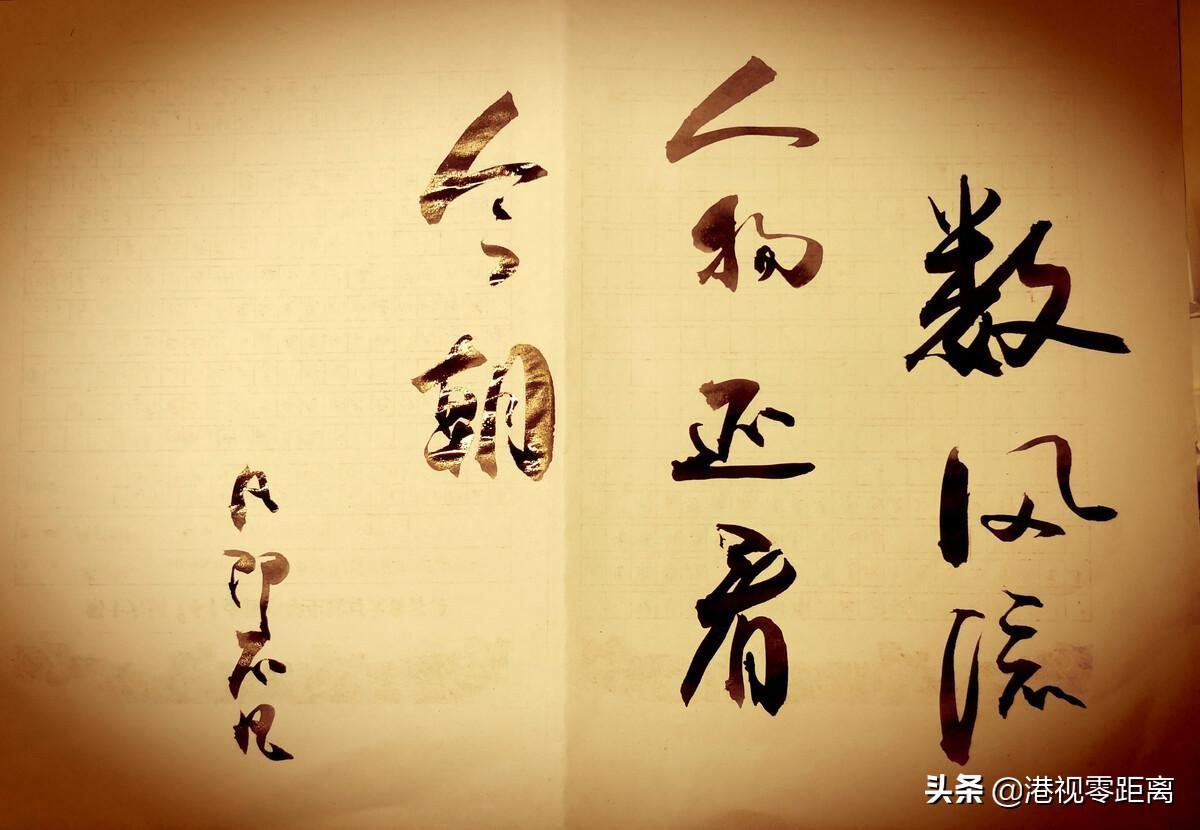 数风流
人物还看
今朝
不凡
头条 @港视零距离